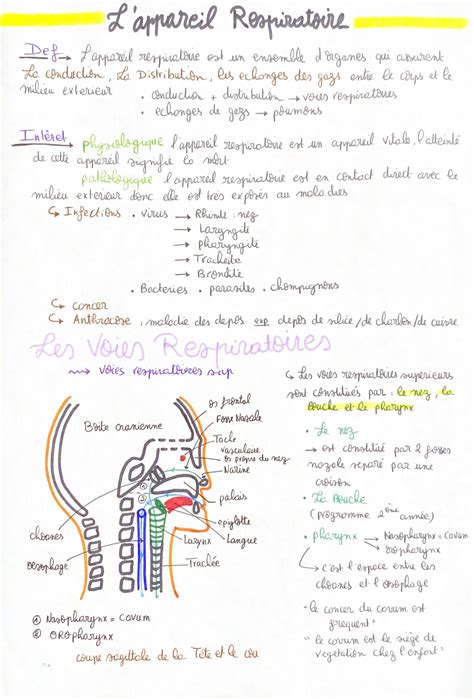 L'appareil Respiratoire
Def → L'appareil respiratoire est un ensemble d'organes qui assurent
La conduction, La Distribution, les echanges des gazs entre le corps et le
milieu exterieur • conduction + distribution → voies respiratoires
• echanges de gazs → poumons
Intêret → physiologique l'appareil respiratoire est un appareil vitale, l'atteinte
de cette appareil signifie la mort
pathologique l'appareil respiratoire est en contact direct avec le
milieu exterieur donc elle est très exposés au maladies
↳ Infections • virus → Rhinte : nez
→ Laryngité
→ pharyngité
→ Tracheite
→ Bronchite
• Bacteries • parasites • champignons
↳ cancer
↳ Anthracose, maladie des depôs exp depôs de silice / de charbon / de cuivre
Les Voies Respiratoires
voies respiratoires sup
↳ Les voies respiratoires superieurs
sont constitués par : le nez, la
bouche et le pharynx
• Le nez
→ est constitué par 2 fosses
nazale separé par une
cloison
• La Bouche
(programme 2ème année)
• pharynx → Nasopharynx = cavum
→ oropharynx
c'est l'espace entre les
choanes et l'osophage
"le cancer du cavum est
frequent"
" le cavum est le siège de
vegetation chez l'enfant"
Boite cranienne
os frontal
Fosse Nasale
Tache
vasculaire
os propre du nez
Narine
palais
epiglotte
Langue
Larynx
Trachée
choanes
oesophage
① Nasopharynx = cavum
② oropharynx
coupe sagittale de la Tête et le cou